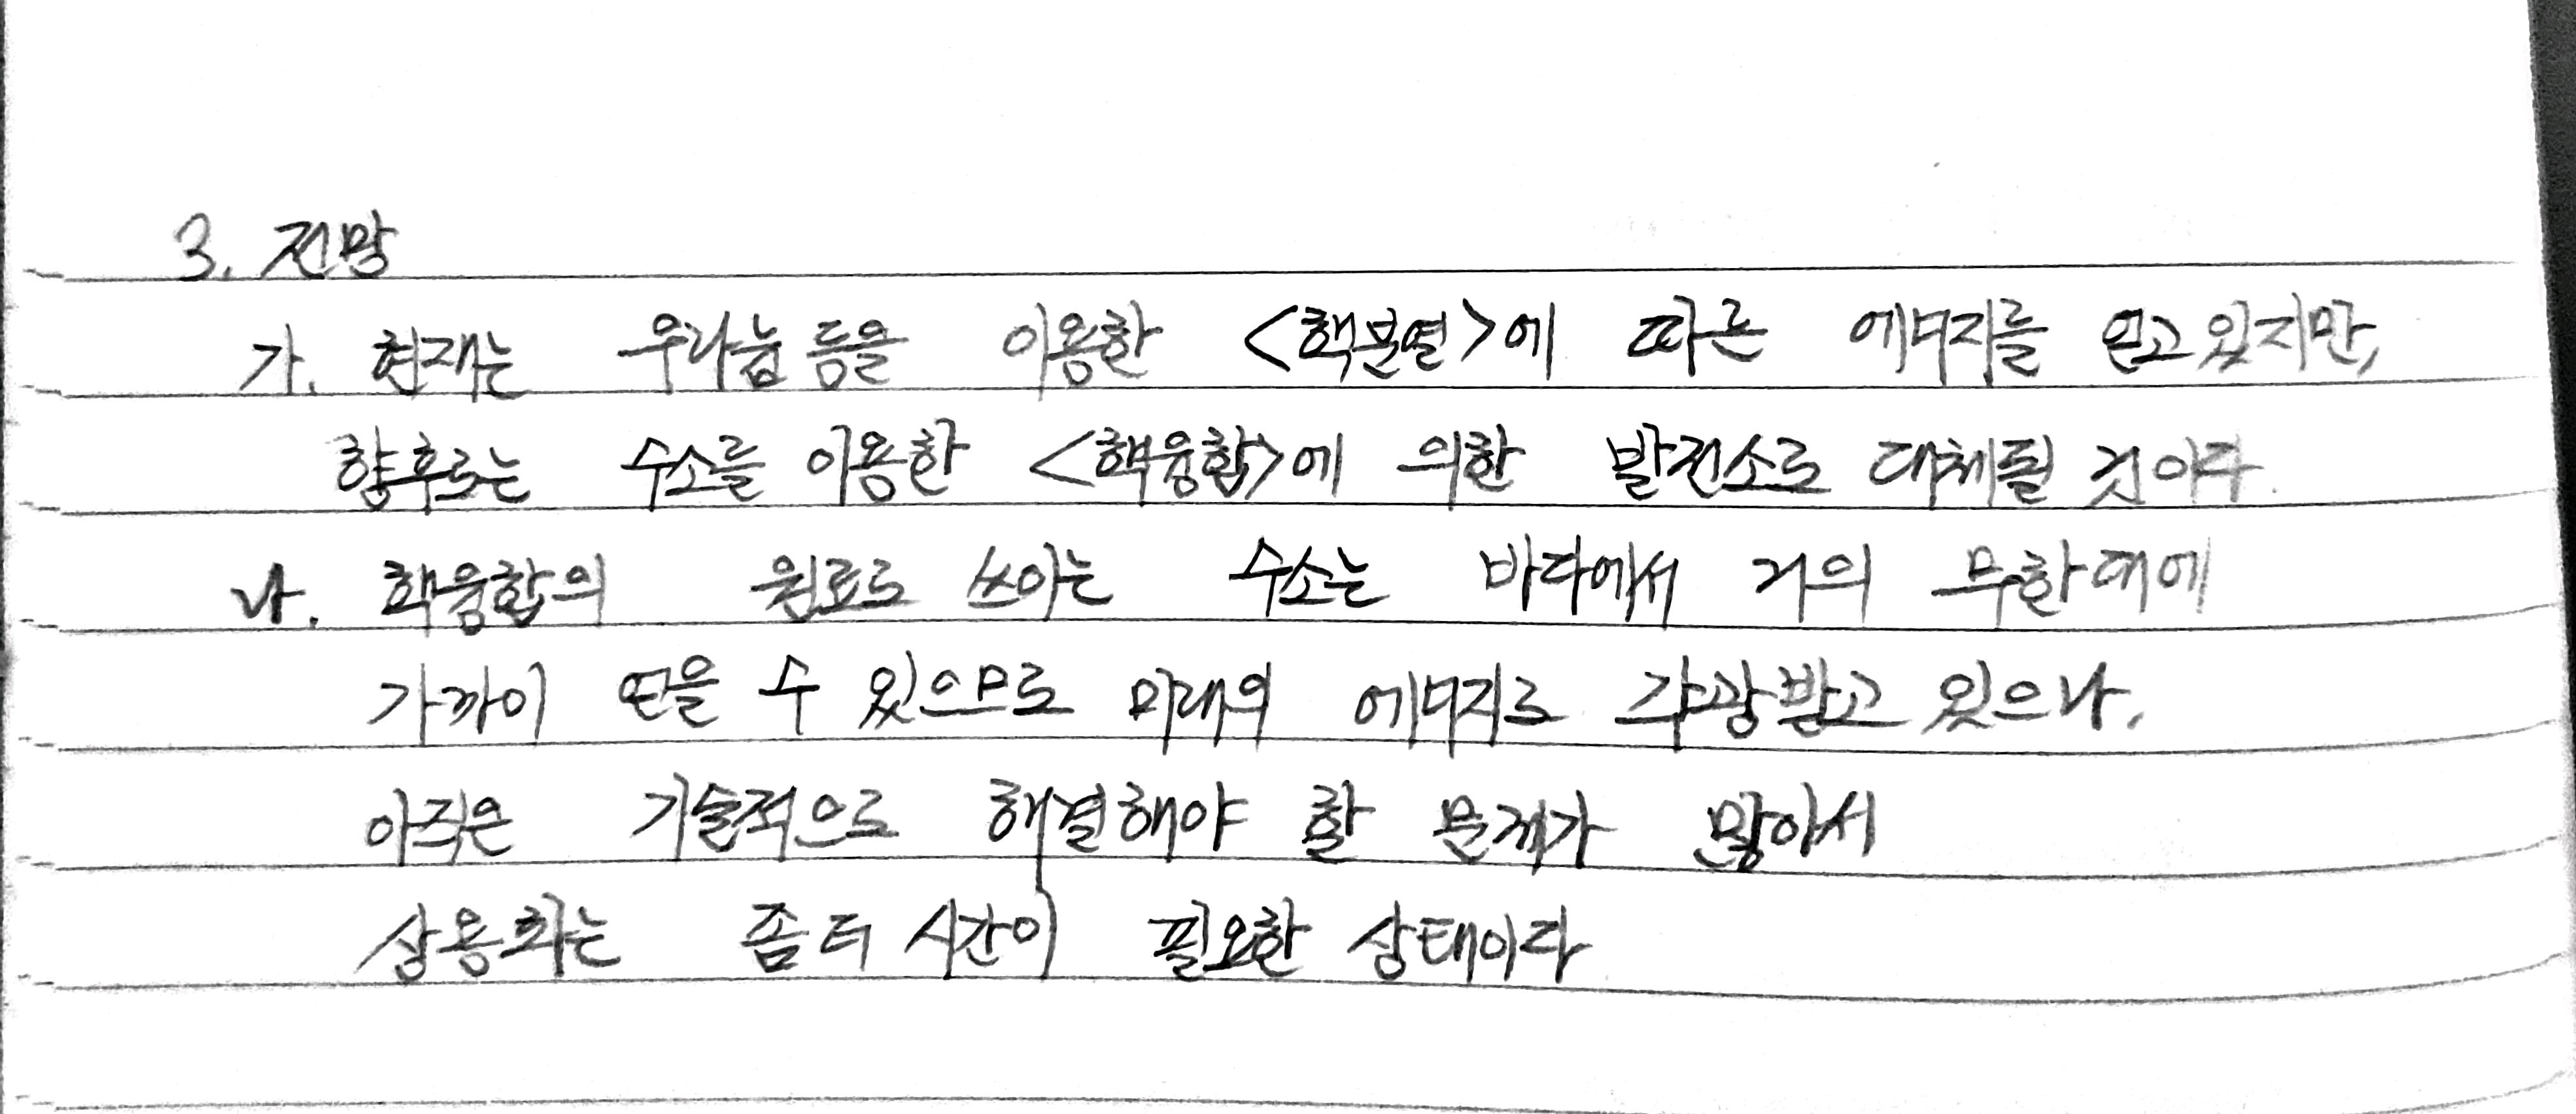 3. 전망
가. 현재는 우라늄 등을 이용한 <핵분열>에 따른 에너지를 얻고 있지만,
향후로는 수소를 이용한 <핵융합>에 의한 발전소로 대체될 것이다.
나. 핵융합의 원료로 쓰이는 수소는 바다에서 거의 무한대에
가까이 얻을 수 있으므로 미래의 에너지로 각광받고 있으나,
아직은 기술적으로 해결해야 할 문제가 많아서
상용화는 좀 더 시간이 필요한 상태이다